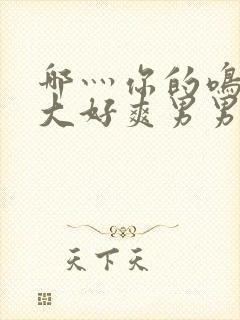 哪灬你的鸣
大好爽男男
天下天